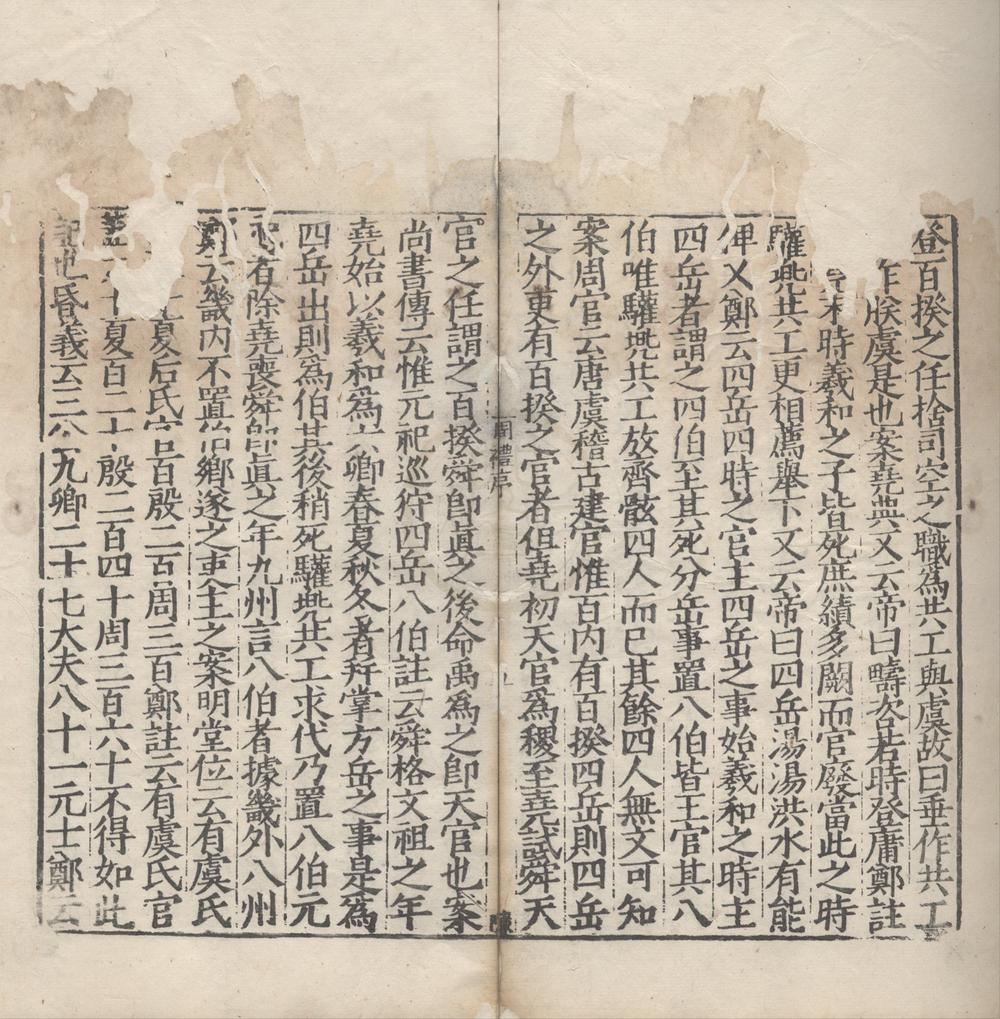 登百揆之任捨司空之職為共工與虞故曰垂作共工
作朕虞是也案堯典又云帝曰疇咨若時登庸鄭註
末時羲和之子皆死庶績多闕而官廢當此之時
驩兠共工更相薦舉下又云帝曰四岳湯湯洪水有能
俾乂鄭云四岳四時之官主四岳之事始羲和之時主
四岳者謂之四伯至其死分岳事置八伯皆王官其八
伯唯驩兠共工放齊骸四人而已其餘四人無文可知
案周官云唐虞稽古建官惟百内有百揆四岳則四岳
之外更有百揆之官者但堯初天官爲稷至堯試舜天
周禮序
官之任謂之百揆舜即眞之後命禹爲之即天官也案
尚書傳云惟元祀巡狩四岳八伯註云舜格文祖之年
堯始以羲和爲六卿春夏秋冬者并掌方岳之事是爲
四岳出則爲伯其後稍死驩兠共工求代乃置八伯元
祀者除堯喪舜即眞之年九州言八伯者據畿外八州
鄭云畿内不置伯鄉遂之吏主之案明堂位云有虞氏
夏后氏官百殷二百周三百鄭註云有虞氏官
蓋六十夏百二十殷二百四十周三百六十不得如此
記也昏義云三公九卿二十七大夫八十一元士鄭云